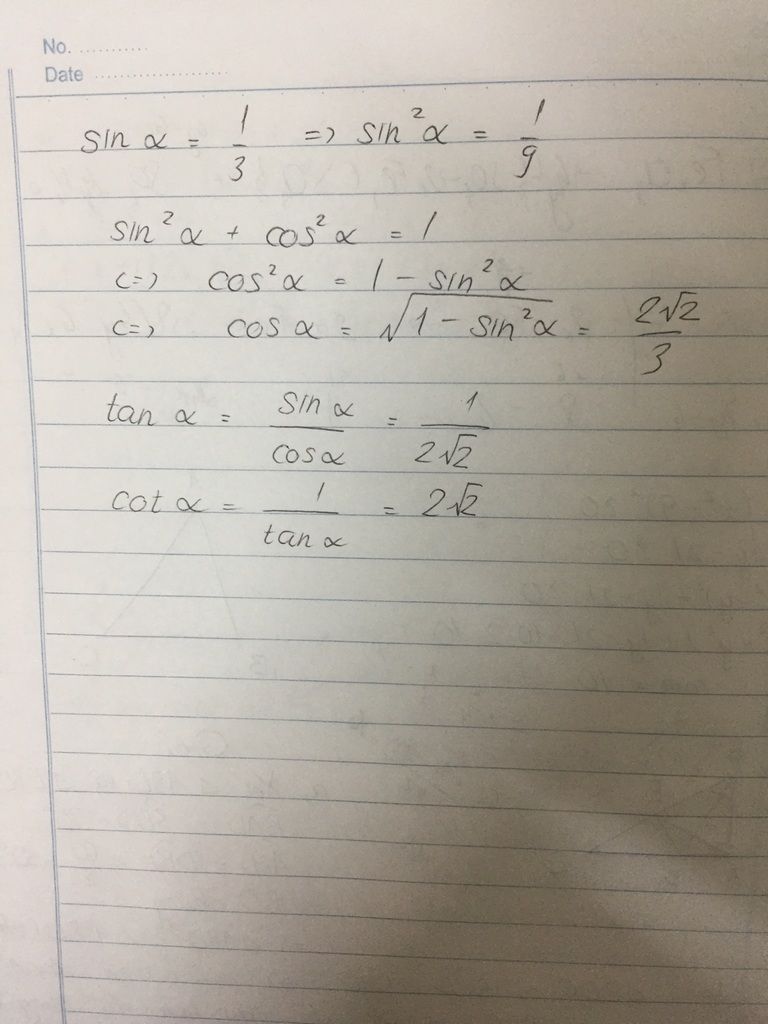 No. ...........
Date ......................
sin α = 1/3 => sin²α = 1/9
sin²α + cos²α = 1
<=> cos²α = 1 - sin²α
<=> cos α = √(1 - sin²α) = 2√2/3
tan α = sin α/cos α = 1/2√2
cot α = 1/tan α = 2√2